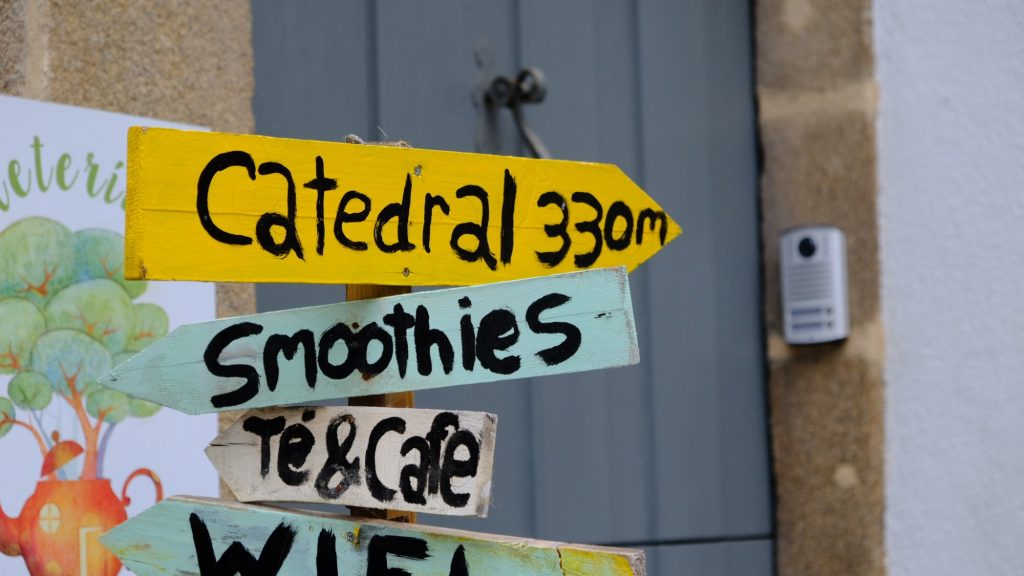 Catedral 330m
Smoothies
Té & Cafe
WIFI